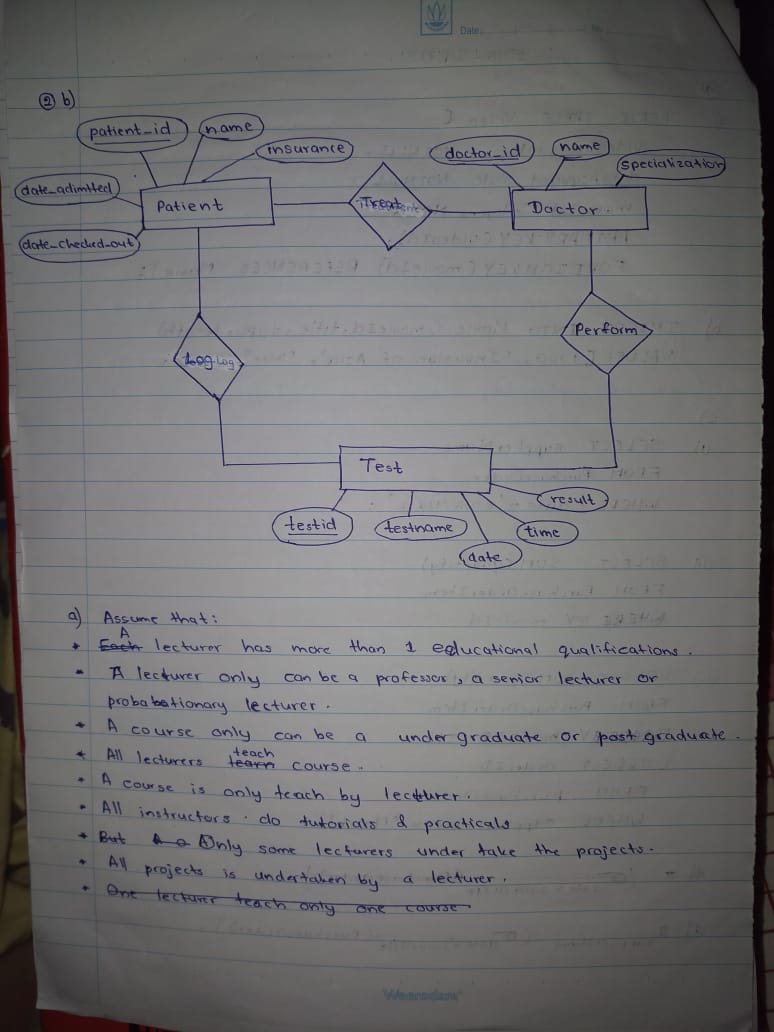 Date:
② b)
patient_id
name
insurance
doctor_id
name
specialization
date_adimitted
Patient
Treat
Doctor.
date_checked_out
Log
Perform
Test
testid
testname
date
time
result
a) Assume that:
A
Each lecturer has more than 1 educational qualifications.
A lecturer only can be a professor, a senior lecturer or
probabationary lecturer.
A course only can be a under graduate or post graduate.
teach
All lecturers learn course.
A course is only teach by lecturer.
All instructors. do tutorials & practicals
But Only some lecturers under take the projects.
All projects is undertaken by a lecturer.
One lecturer teach only one course